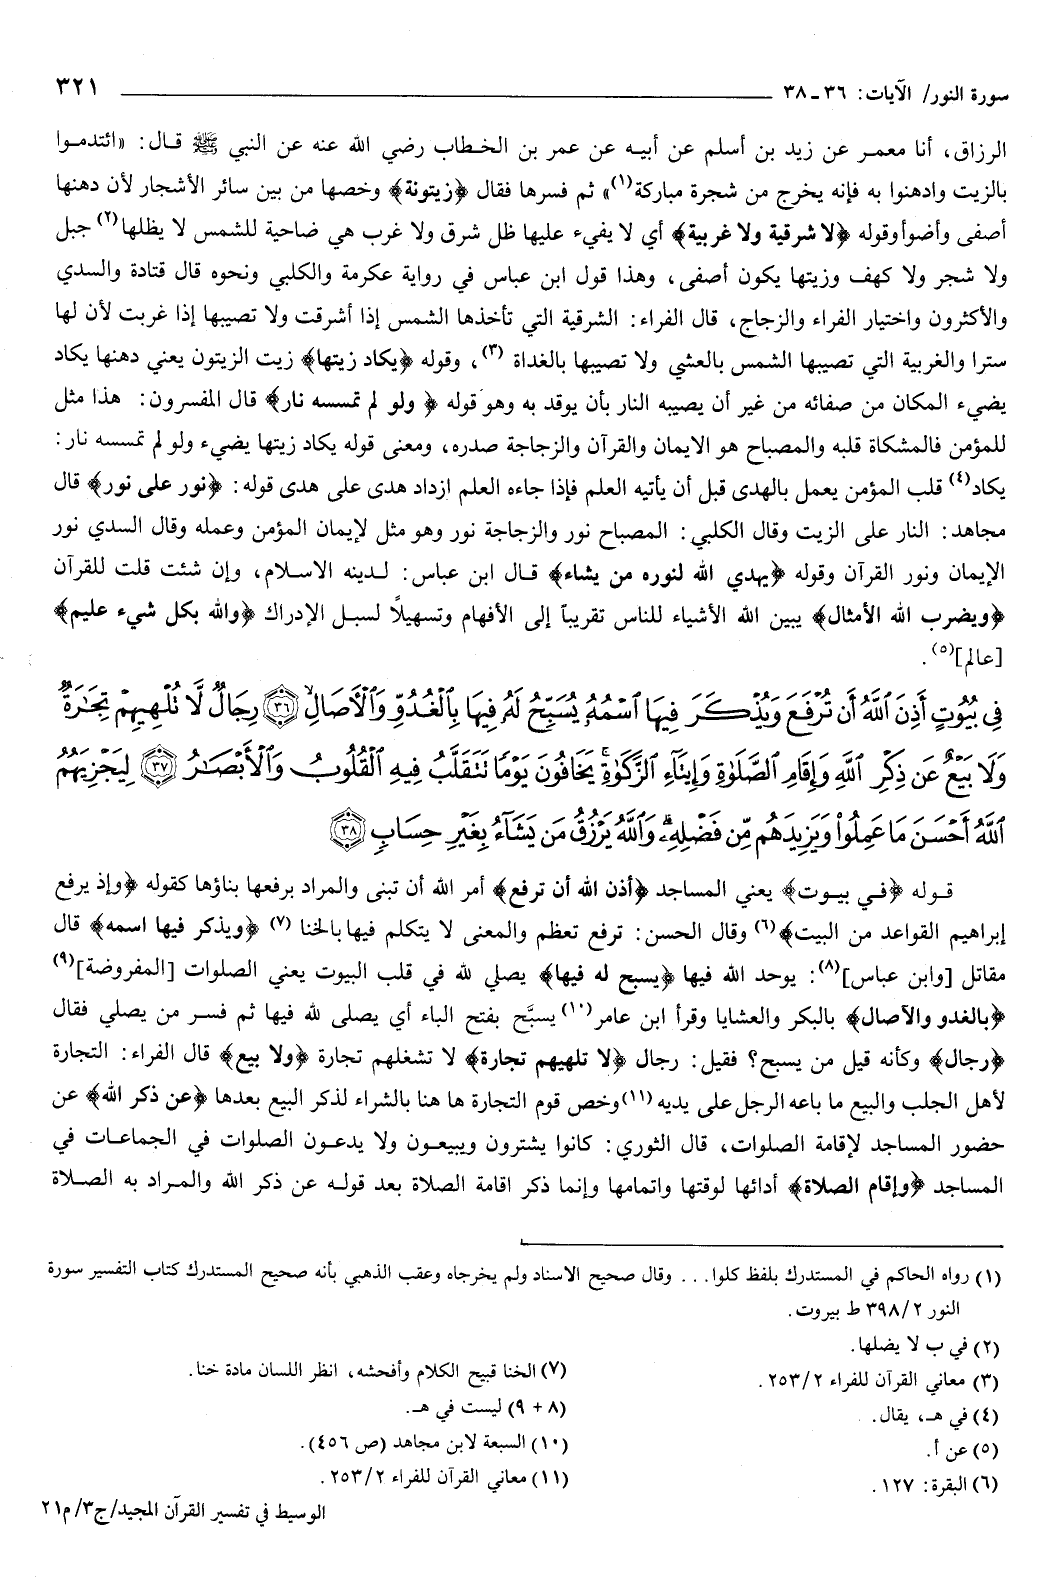 سورة النور/ الآيات: ٣٦ - ٣٨
٣٢١
الرزاق، أنا معمر عن زيد بن أسلم عن أبيه عن عمر بن الخطاب رضي الله عنه عن النبي ﷺ قال: «ائتدموا
بالزيت وادهنوا به فإنه يخرج من شجرة مباركة(١)» ثم فسرها فقال ﴿زيتونة﴾ وخصها من بين سائر الأشجار لأن دهنها
أصفى وأضوأ وقوله ﴿لا شرقية ولا غربية﴾ أي لا يفيء عليها ظل شرق ولا غرب هي ضاحية للشمس لا يظلها(٢) جبل
ولا شجر ولا كهف وزيتها يكون أصفى، وهذا قول ابن عباس في رواية عكرمة والكلبي ونحوه قال قتادة والسدي
والأكثرون واختيار الفراء والزجاج، قال الفراء: الشرقية التي تأخذها الشمس إذا أشرقت ولا تصيبها إذا غربت لأن لها
سترا والغربية التي تصيبها الشمس بالعشي ولا تصيبها بالغداة (٣)، وقوله ﴿يكاد زيتها﴾ زيت الزيتون يعني دهنها يكاد
يضيء المكان من صفائه من غير أن يصيبه النار بأن يوقد به وهو قوله ﴿ولو لم تمسسه نار﴾ قال المفسرون: هذا مثل
للمؤمن فالمشكاة قلبه والمصباح هو الايمان والقرآن والزجاجة صدره، ومعنى قوله يكاد زيتها يضيء ولو لم تمسسه نار:
يكاد(٤) قلب المؤمن يعمل بالهدى قبل أن يأتيه العلم فإذا جاءه العلم ازداد هدى على هدى قوله: ﴿نور على نور﴾ قال
مجاهد: النار على الزيت وقال الكلبي: المصباح نور والزجاجة نور وهو مثل لإيمان المؤمن وعمله وقال السدي نور
الإيمان ونور القرآن وقوله ﴿يهدي الله لنوره من يشاء﴾ قال ابن عباس: لدينه الاسلام، وإن شئت قلت للقرآن
﴿ويضرب الله الأمثال﴾ يبين الله الأشياء للناس تقريباً إلى الأفهام وتسهيلاً لسبل الإدراك ﴿والله بكل شيء عليم﴾
[عالم](٥).
فِي بُيُوتٍ أَذِنَ ٱللَّهُ أَن تُرْفَعَ وَيُذْكَرَ فِيهَا ٱسْمُهُۥ يُسَبِّحُ لَهُۥ فِيهَا بِٱلْغُدُوِّ وَٱلْأَصَالِ ٣٦ رِجَالٌ لَّا تُلْهِيهِمْ تِجَٰرَةٌ
وَلَا بَيْعٌ عَن ذِكْرِ ٱللَّهِ وَإِقَامِ ٱلصَّلَوٰةِ وَإِيتَآءِ ٱلزَّكَوٰةِ يَخَافُونَ يَوْمًا تَتَقَلَّبُ فِيهِ ٱلْقُلُوبُ وَٱلْأَبْصَٰرُ ٣٧ لِيَجْزِيَهُمُ
ٱللَّهُ أَحْسَنَ مَا عَمِلُوا۟ وَيَزِيدَهُم مِّن فَضْلِهِۦ وَٱللَّهُ يَرْزُقُ مَن يَشَآءُ بِغَيْرِ حِسَابٍ ٣٨
قوله ﴿في بيوت﴾ يعني المساجد ﴿أذن الله أن ترفع﴾ أمر الله أن تبنى والمراد برفعها بناؤها كقوله ﴿وإذ يرفع
إبراهيم القواعد من البيت﴾(٦) وقال الحسن: ترفع تعظم والمعنى لا يتكلم فيها بالخنا (٧) ﴿ويذكر فيها اسمه﴾ قال
مقاتل [وابن عباس](٨): يوحد الله فيها ﴿يسبح له فيها﴾ يصلي لله في قلب البيوت يعني الصلوات [المفروضة](٩)
﴿بالغدو والآصال﴾ بالبكر والعشايا وقرأ ابن عامر(١٠) يسبَّح بفتح الباء أي يصلى لله فيها ثم فسر من يصلي فقال
﴿رجال﴾ وكأنه قيل من يسبح؟ فقيل: رجال ﴿لا تلهيهم تجارة﴾ لا تشغلهم تجارة ﴿ولا بيع﴾ قال الفراء: التجارة
لأهل الجلب والبيع ما باعه الرجل على يديه (١١) وخص قوم التجارة ها هنا بالشراء لذكر البيع بعدها ﴿عن ذكر الله﴾ عن
حضور المساجد لإقامة الصلوات، قال الثوري: كانوا يشترون ويبيعون ولا يدعون الصلوات في الجماعات في
المساجد ﴿وإقام الصلاة﴾ أدائها لوقتها واتمامها وإنما ذكر اقامة الصلاة بعد قوله عن ذكر الله والمراد به الصلاة
(١) رواه الحاكم في المستدرك بلفظ كلوا... وقال صحيح الاسناد ولم يخرجاه وعقب الذهبي بأنه صحيح المستدرك كتاب التفسير سورة
النور ٣٩٨/٢ ط بيروت.
(٢) في ب لا يضلها.
(٣) معاني القرآن للفراء ٢٥٣/٢.
(٤) في هـ، يقال.
(٥) عن أ.
(٦) البقرة: ١٢٧.
(٧) الخنا قبيح الكلام وأفحشه، انظر اللسان مادة خنا.
(٨ + ٩) ليست في هـ.
(١٠) السبعة لابن مجاهد (ص ٤٥٦).
(١١) معاني القرآن للفراء ٢٥٣/٢.
الوسيط في تفسير القرآن المجيد/ج٣/م٢١